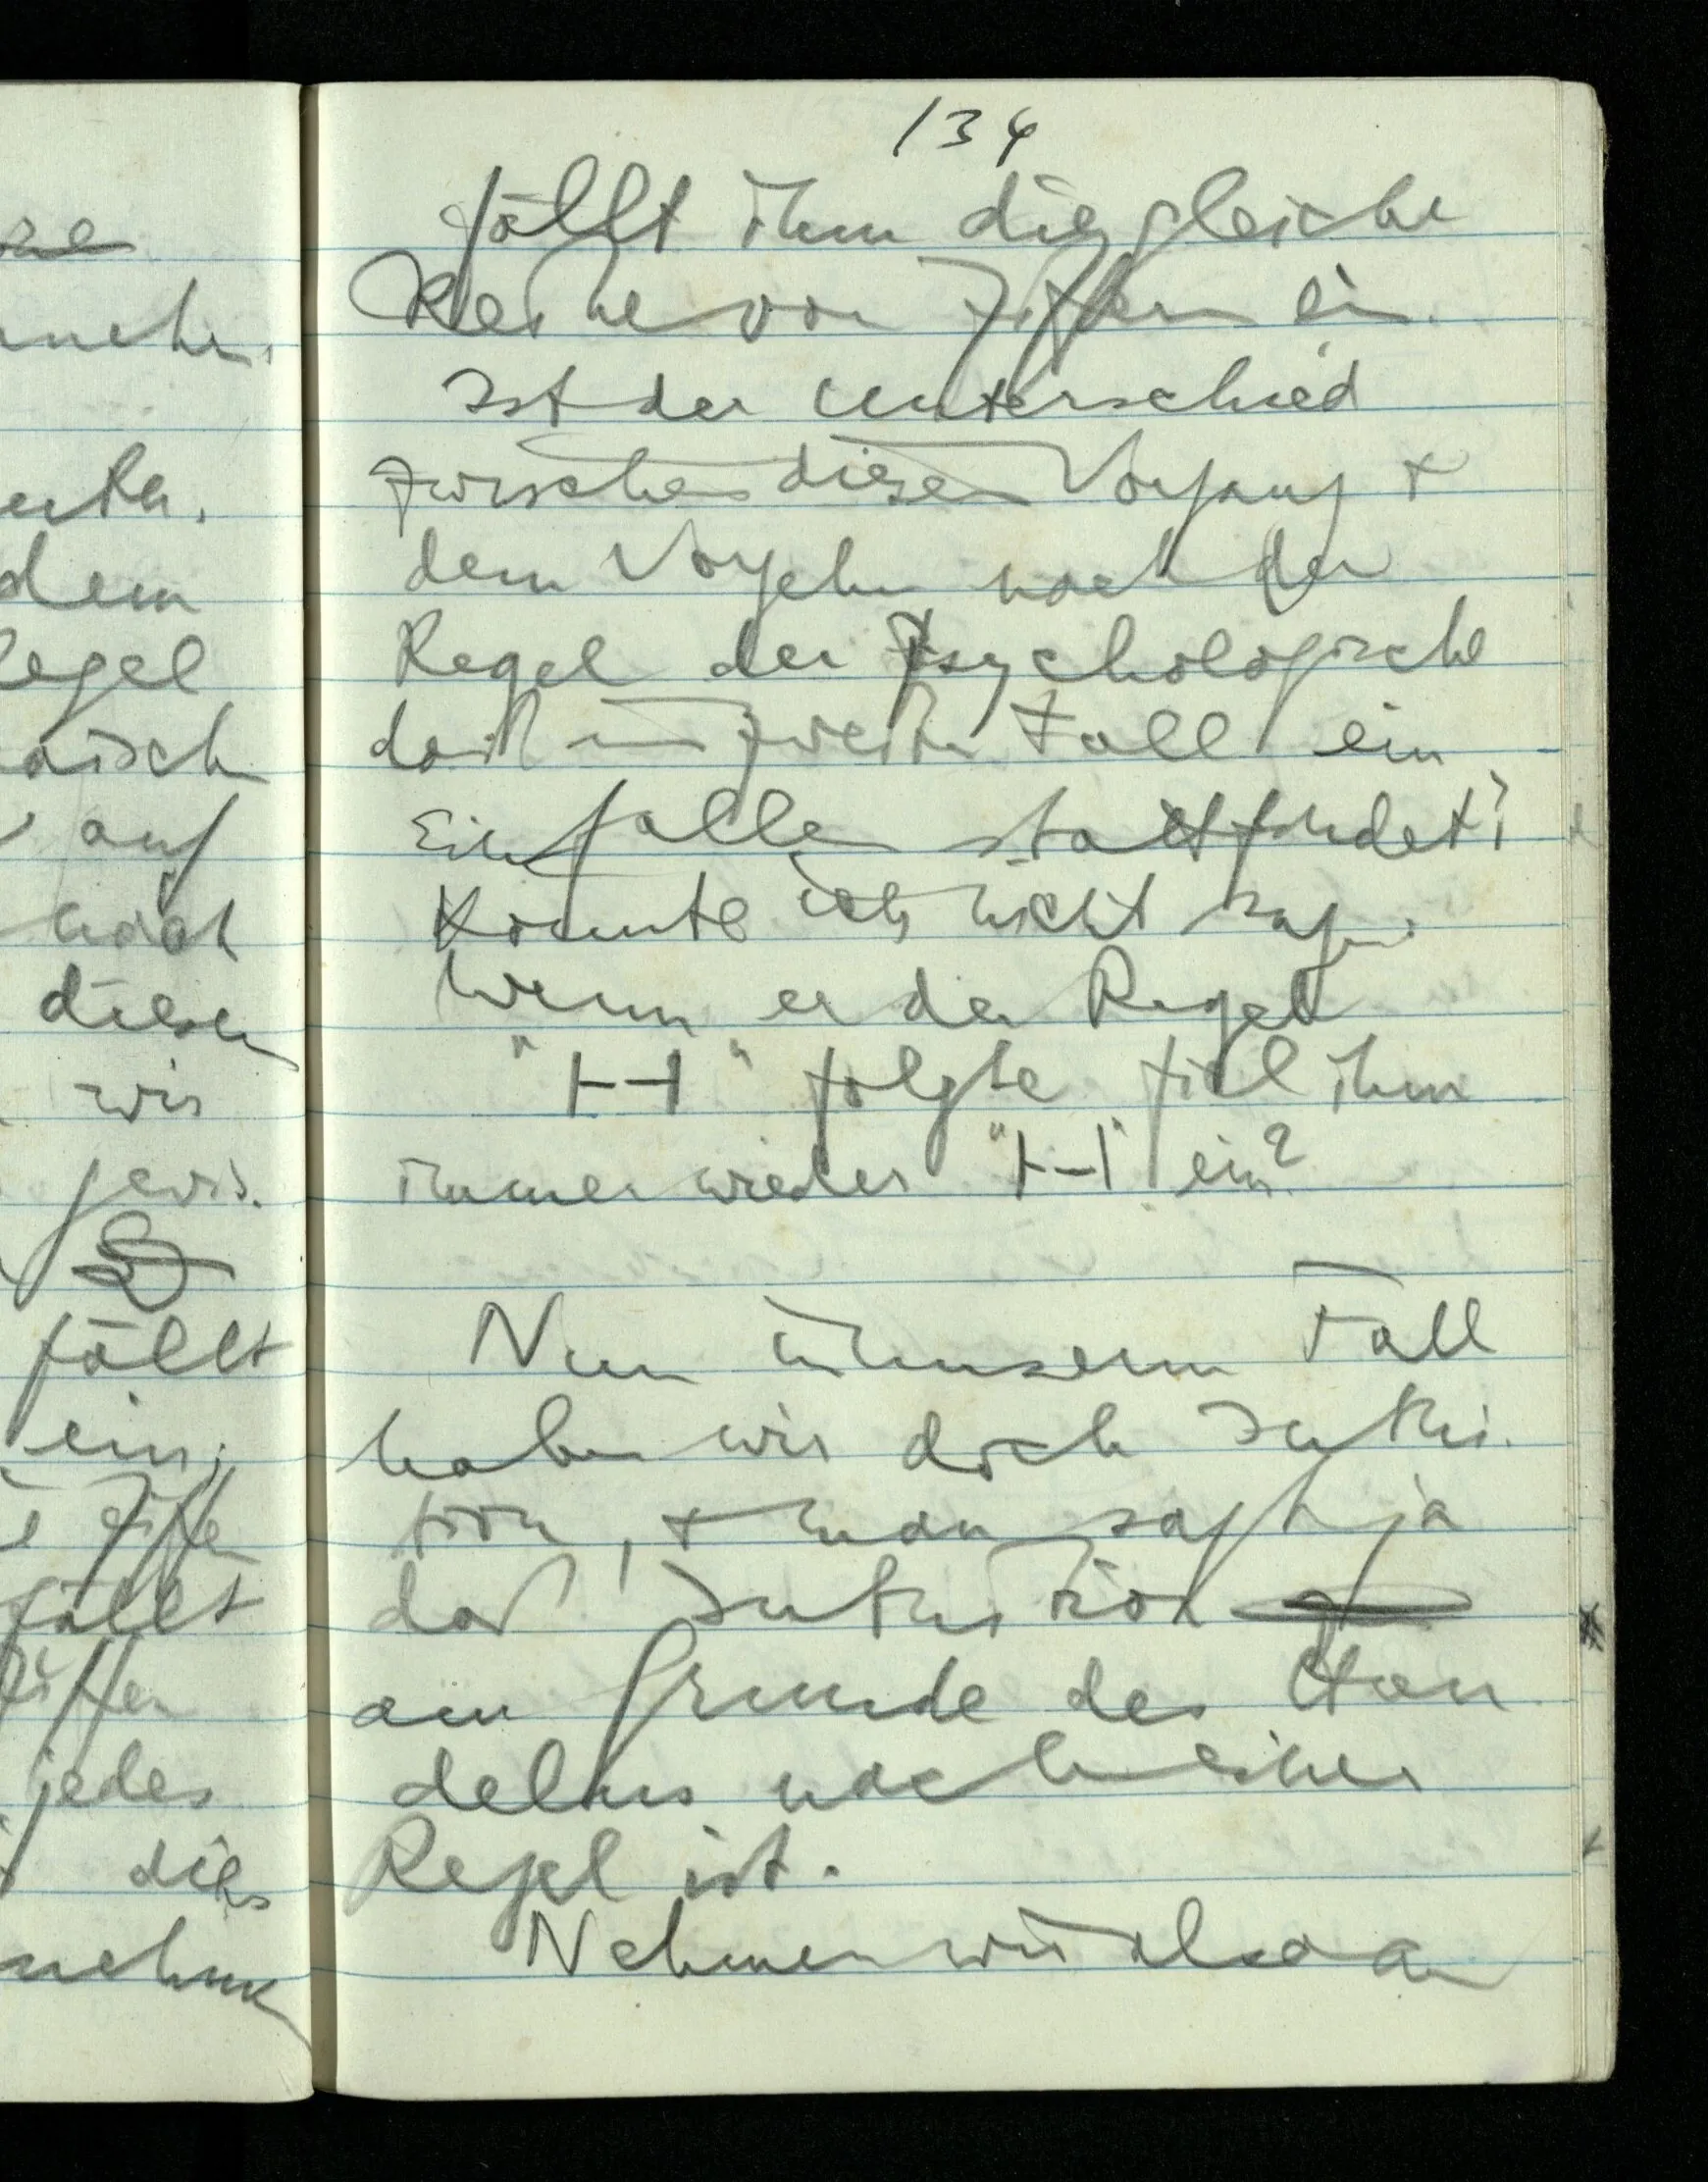 re
mehr.
dem
Regel
auf
noch
diesen
wir
gewiß.
fällt
ein;
Ziffer
fällt
Ziffer
jedes
dies
134
fällt ihm die gleiche
Reihe von Ziffern ein.
Ist der Unterschied
zwischen diesem Vorgang +
dem Vorgehn nach der
Regel der psychologische
daß im zweiten Fall ein
Einfallen stattfindet?
Könnte ich nicht sagen:
Wenn er der Regel
"|--|" folgte fiel ihm
immer wieder "|--|" ein?
Nun in unserm Fall
haben wir doch Intui-
tion, + man sagt ja
daß Intuition
am Grunde des Han
delns nach einer
Regel ist.
Nehmen wir also an